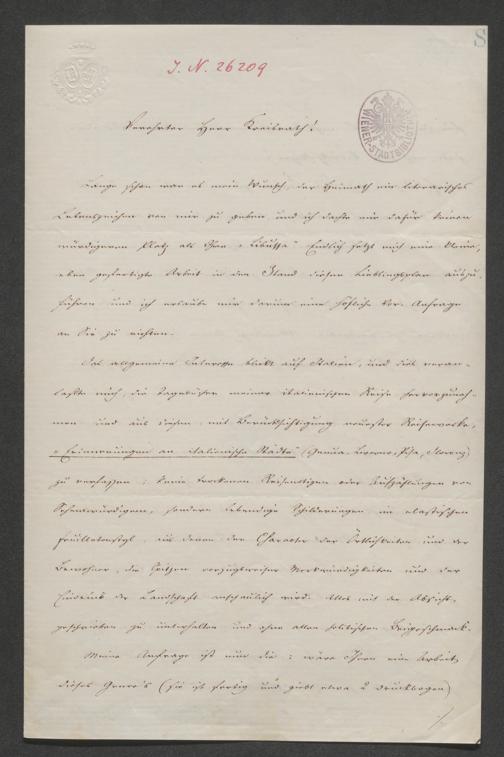 8
J. N. 26209
WIENER-STADTBIBLIOTHEK
Verehrter Herr Kreisrath!
Lange schon war es mein Wunsch, der Heimath ein literarisches
Lebenszeichen von mir zu geben und ich dachte mir dafür keinen
würdigeren Platz als Ihre „Libussa“. Endlich setzt mich eine kleine,
eben gefertigte Arbeit in den Stand diesen Lieblingsplan auszu-
führen und ich erlaube mir darum eine höfliche Vor-Anfrage
an Sie zu richten.
Das allgemeine Interesse blickt auf Italien, und dies veran-
laßte mich, die Tagebücher meiner italienischen Reise hervorzuneh-
men und aus diesen, mit Berücksichtigung neuester Reisewerke,
„Erinnerungen an italienische Städte“ (Genua, Livorno, Pisa, Florenz)
zu verfassen; keine trockenen Reisenotizen oder Aufzählungen von
Sehenswürdigem, sondern lebendige Schilderungen im elastischen
Feuilletonstyl, aus denen der Character der Örtlichkeiten und der
Bewohner, die Spitzen vorzüglicher Merkwürdigkeiten und der
Eindruck der Landschaft anschaulich wird. Alles mit der Absicht
geschrieben zu unterhalten und ohne allen politischen Beigeschmack.
Meine Anfrage ist nun die: wäre Ihnen eine Arbeit
dieses Genre's (sie ist fertig und giebt etwa 2 Druckbogen)